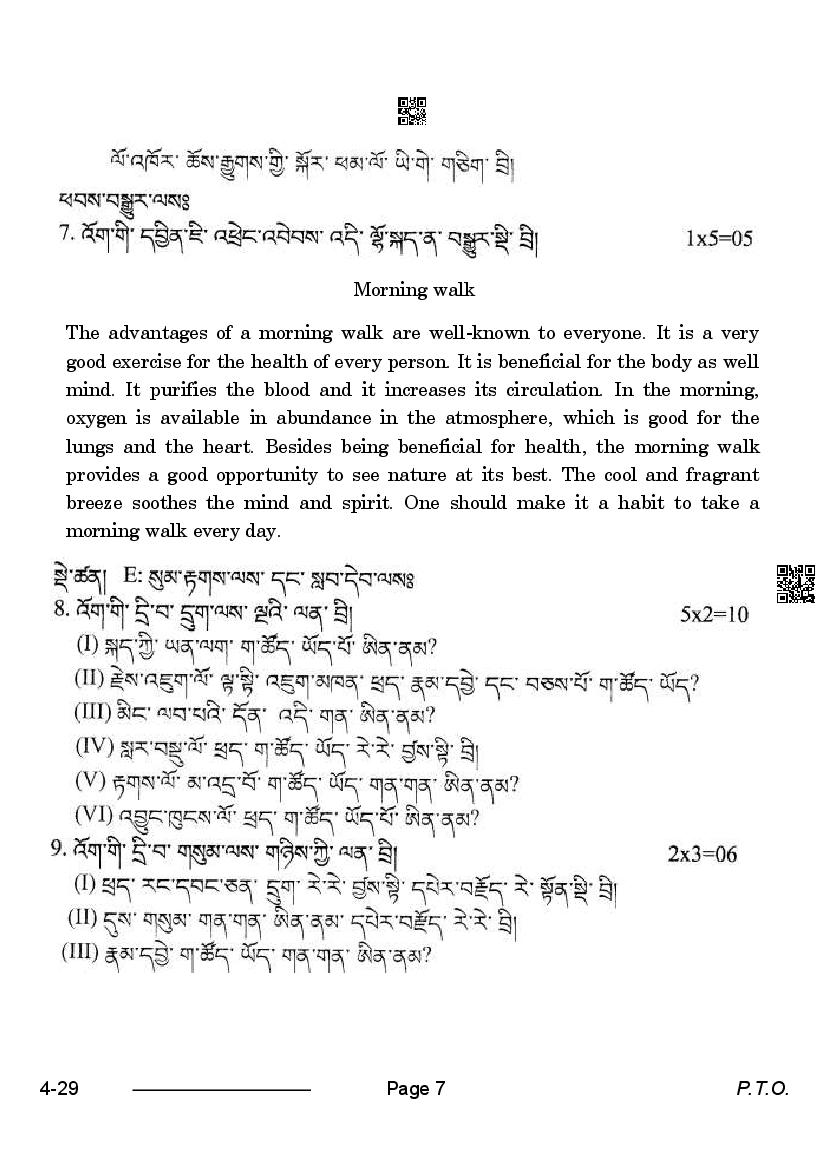 ལོ་འཁོར་ ཆོས་རྒྱུགས་ཀྱི་ སྐོར་ ཕམ་ལོ་ ཡི་གེ་ གཅིག་ བྲི།
ཕབས་བསྒྱུར་ལས༔
7. འོག་གི་ དབྱིན་ཇི་ འཕྲེང་འབེབས་ འདི་ ལྷོ་སྐད་ན་ བསྒྱུར་སྡི་ བྲི། 1x5=05
Morning walk
The advantages of a morning walk are well-known to everyone. It is a very
good exercise for the health of every person. It is beneficial for the body as well
mind. It purifies the blood and it increases its circulation. In the morning,
oxygen is available in abundance in the atmosphere, which is good for the
lungs and the heart. Besides being beneficial for health, the morning walk
provides a good opportunity to see nature at its best. The cool and fragrant
breeze soothes the mind and spirit. One should make it a habit to take a
morning walk every day.
སྡེ་ཚན། E: སུམ་རྟགས་ལས་ དང་ སླབ་དེབ་ལས༔
8. འོག་གི་ དྲི་བ་ དྲུག་ལས་ ལྔའི་ ལན་ བྲི། 5x2=10
(I) སྐད་ཀྱི་ ཡན་ལག་ ག་ཚོད་ ཡོད་པོ་ ཨིན་ནམ?
(II) རྗེས་འཇུག་ལོ་ ལྟ་སྟི་ འཇུག་མཁན་ ཕྲད་ རྣམ་དབྱེ་ དང་ བཅས་པོ་ ག་ཚོད་ ཡོད?
(III) མིང་ ལབ་པའི་ དོན་ འདི་ གན་ ཨིན་ནམ?
(IV) སླར་བསྡུ་ལོ་ ཕྲད་ ག་ཚོད་ ཡོད་ རེ་རེ་ བྱོས་སྟི་ བྲི།
(V) རྟགས་ལོ་ མ་འདྲ་བོ་ ག་ཚོད་ ཡོད་ གན་གན་ ཨིན་ནམ?
(VI) འབྱུང་ཁུངས་ལོ་ ཕྲད་ ག་ཚོད་ ཡོད་པོ་ ཨིན་ནམ?
9. འོག་གི་ དྲི་བ་ གསུམ་ལས་ གཉིས་ཀྱི་ ལན་ བྲི། 2x3=06
(I) ཕྲད་ རང་དབང་ཅན་ དྲུག་ རེ་རེ་ བྱོས་སྟི་ དཔེར་བརྗོད་ རེ་ སྟོན་སྡི་ བྲི།
(II) དུས་ གསུམ་ གན་གན་ ཨིན་ནམ་ དཔེར་བརྗོད་ རེ་རེ་ བྲི།
(III) རྣམ་དབྱེ་ ག་ཚོད་ ཡོད་ གན་གན་ ཨིན་ནམ?
4-29 Page 7 P.T.O.